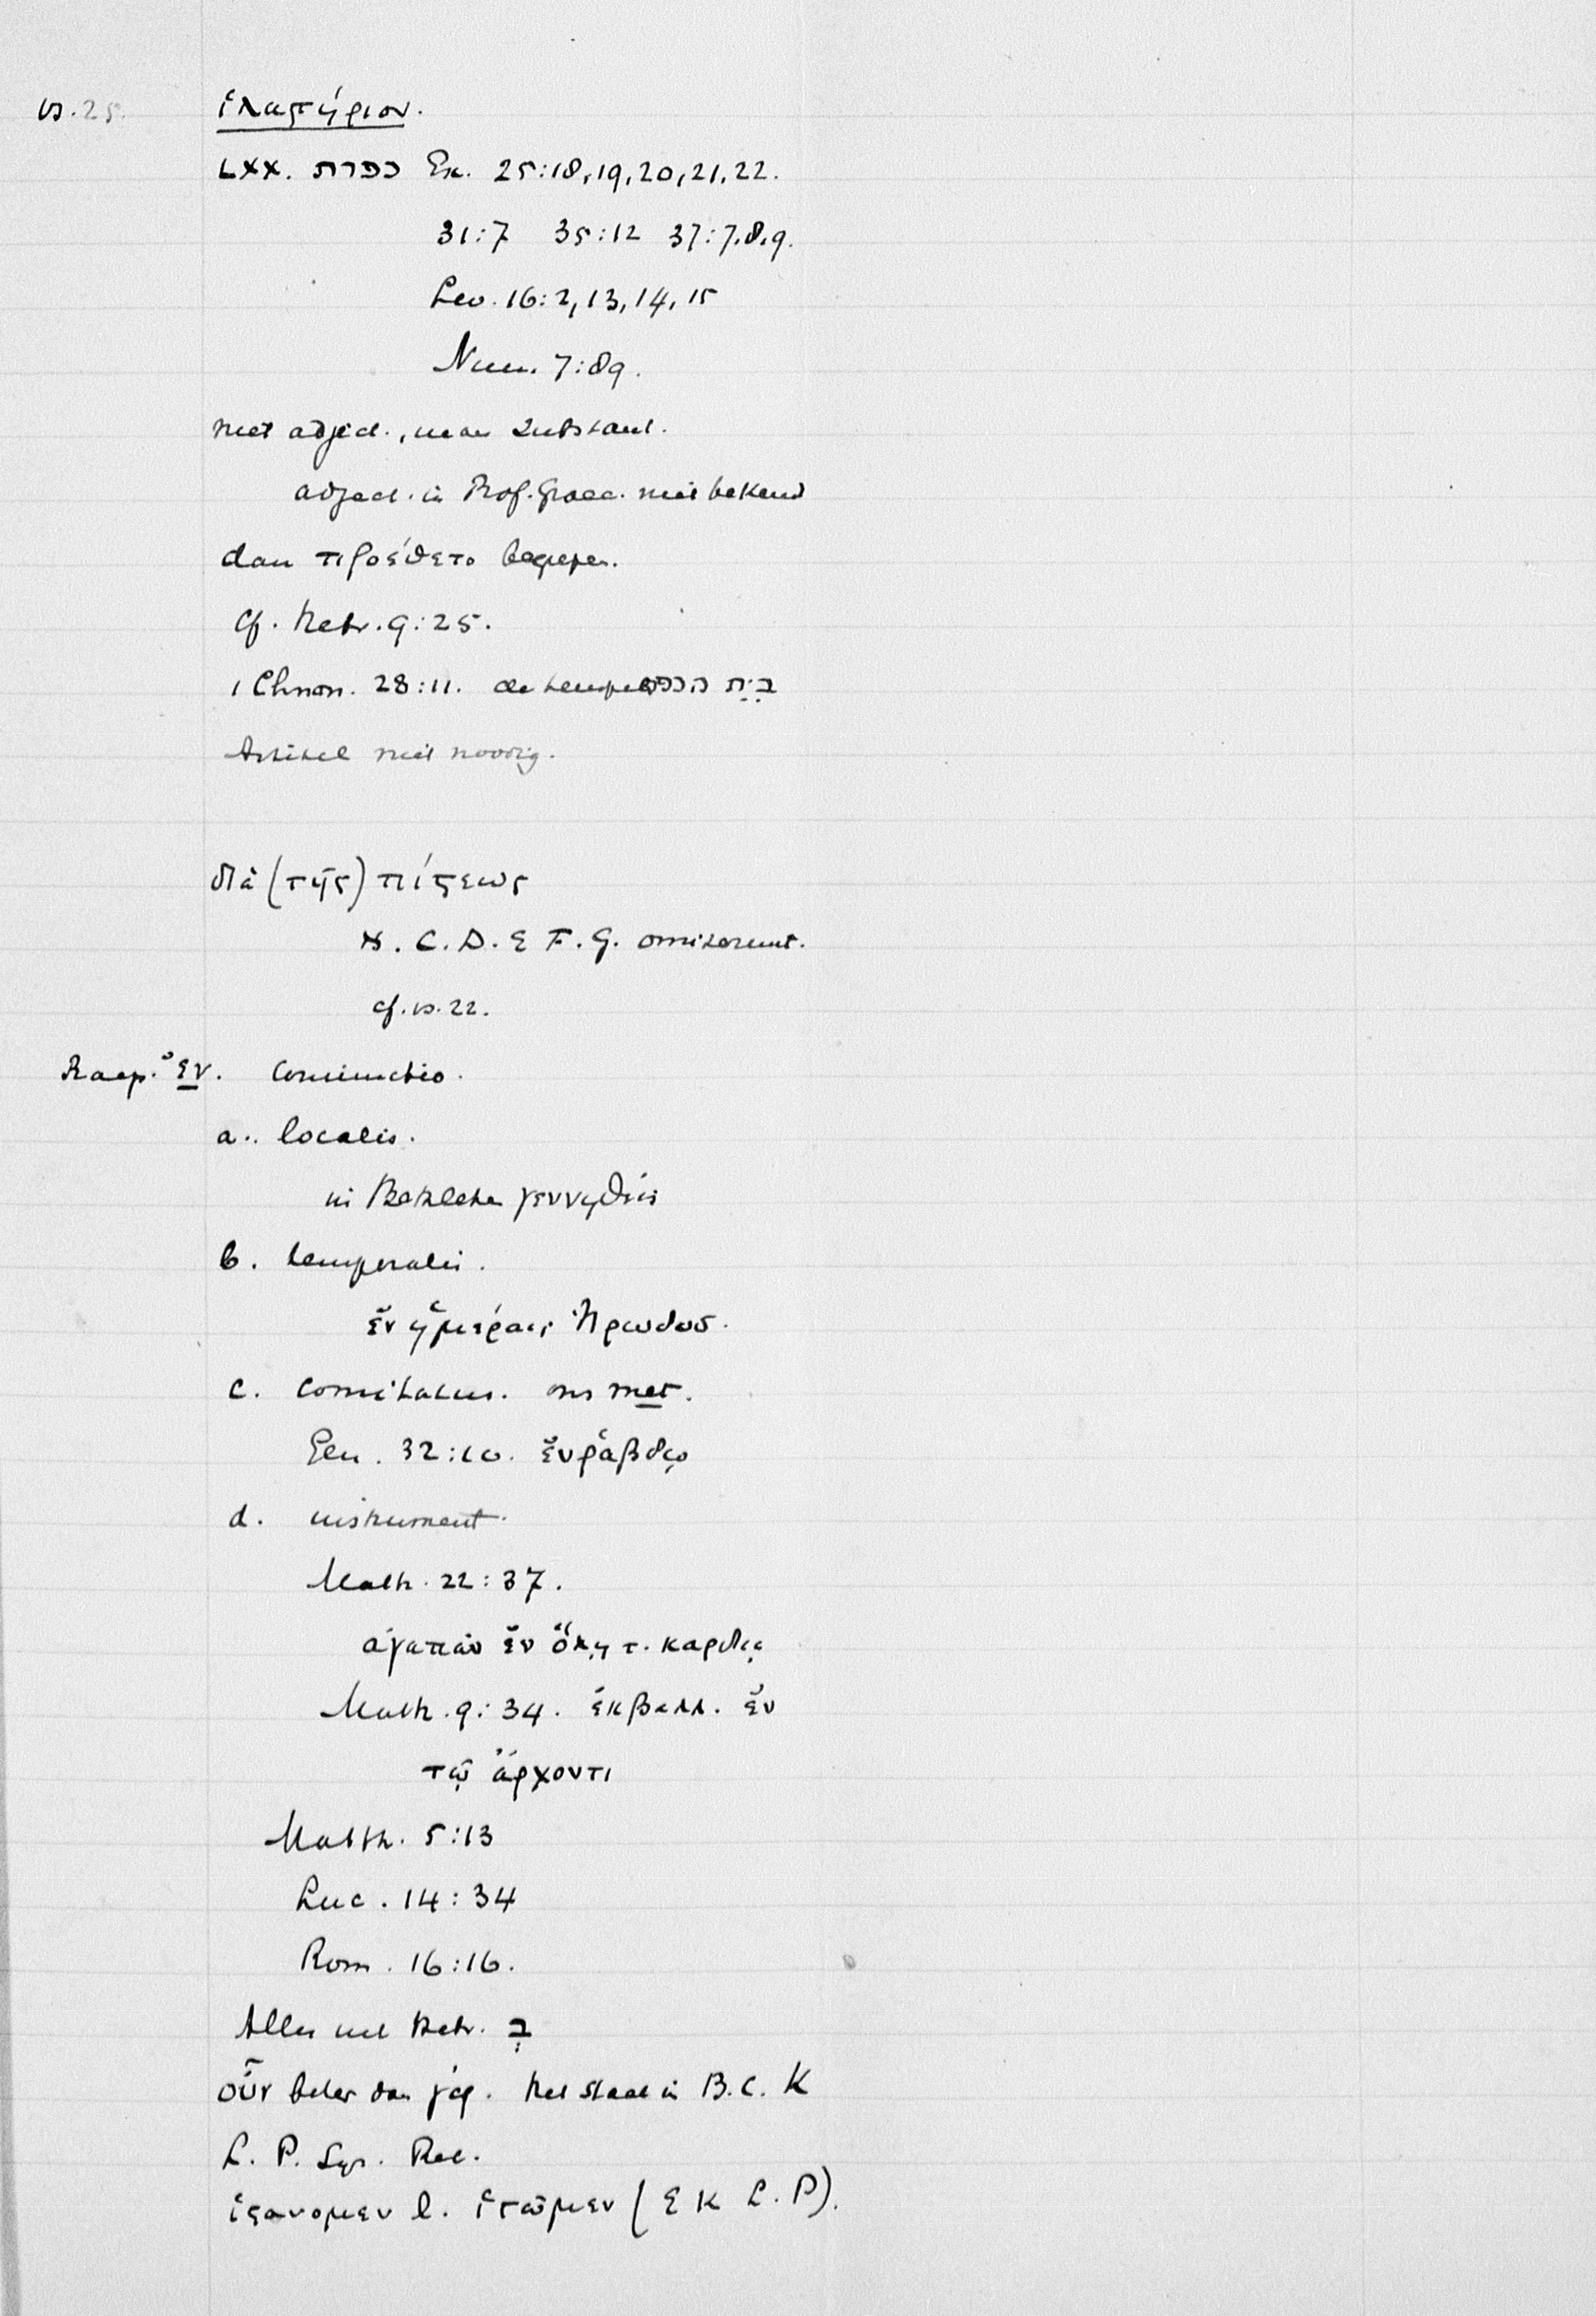 vs. 25. ἱλαστήριον.
LXX. כפרת Ex. 25:18,19,20,21,22.
31:7 35:12 37:7.8.9.
Lev. 16:2,13,14,15
Num. 7:89.
niet adject., maar Substant.
adject. in Prof. Graec. niet bekend
dan προέθετο
cf. Hebr. 9:25.
1 Chron. 28:11. de tempel בית הכפרת
Artikel niet noodig.
διὰ (τῆς) πίστεως
א. C. D. E F. G. omiserunt.
cf. vs. 22.
ἐν. Coniunctio.
a. localis.
in Bethlehem γεννηθείς
b. temporalis.
ἐν ἡμέραις Ἡρώδου.
c. comitatus. ons met.
Gen. 32:10. ἐν ῥάβδῳ
d. instrument.
Matth. 22:37.
ἀγαπᾶν ἐν ὅλῃ τ. καρδίᾳ
Matth. 9:34. ἐκβαλλ. ἐν
τῷ ἄρχοντι
Matth. 5:13
Luc. 14:34
Rom. 16:16.
Alles uit Hebr. בְּ
οὖν beter dan γάρ. Het staat in B. C. K
L. P. Syr. Rec.
ἱστανομεν l. ἱστῶμεν (E K L. P).